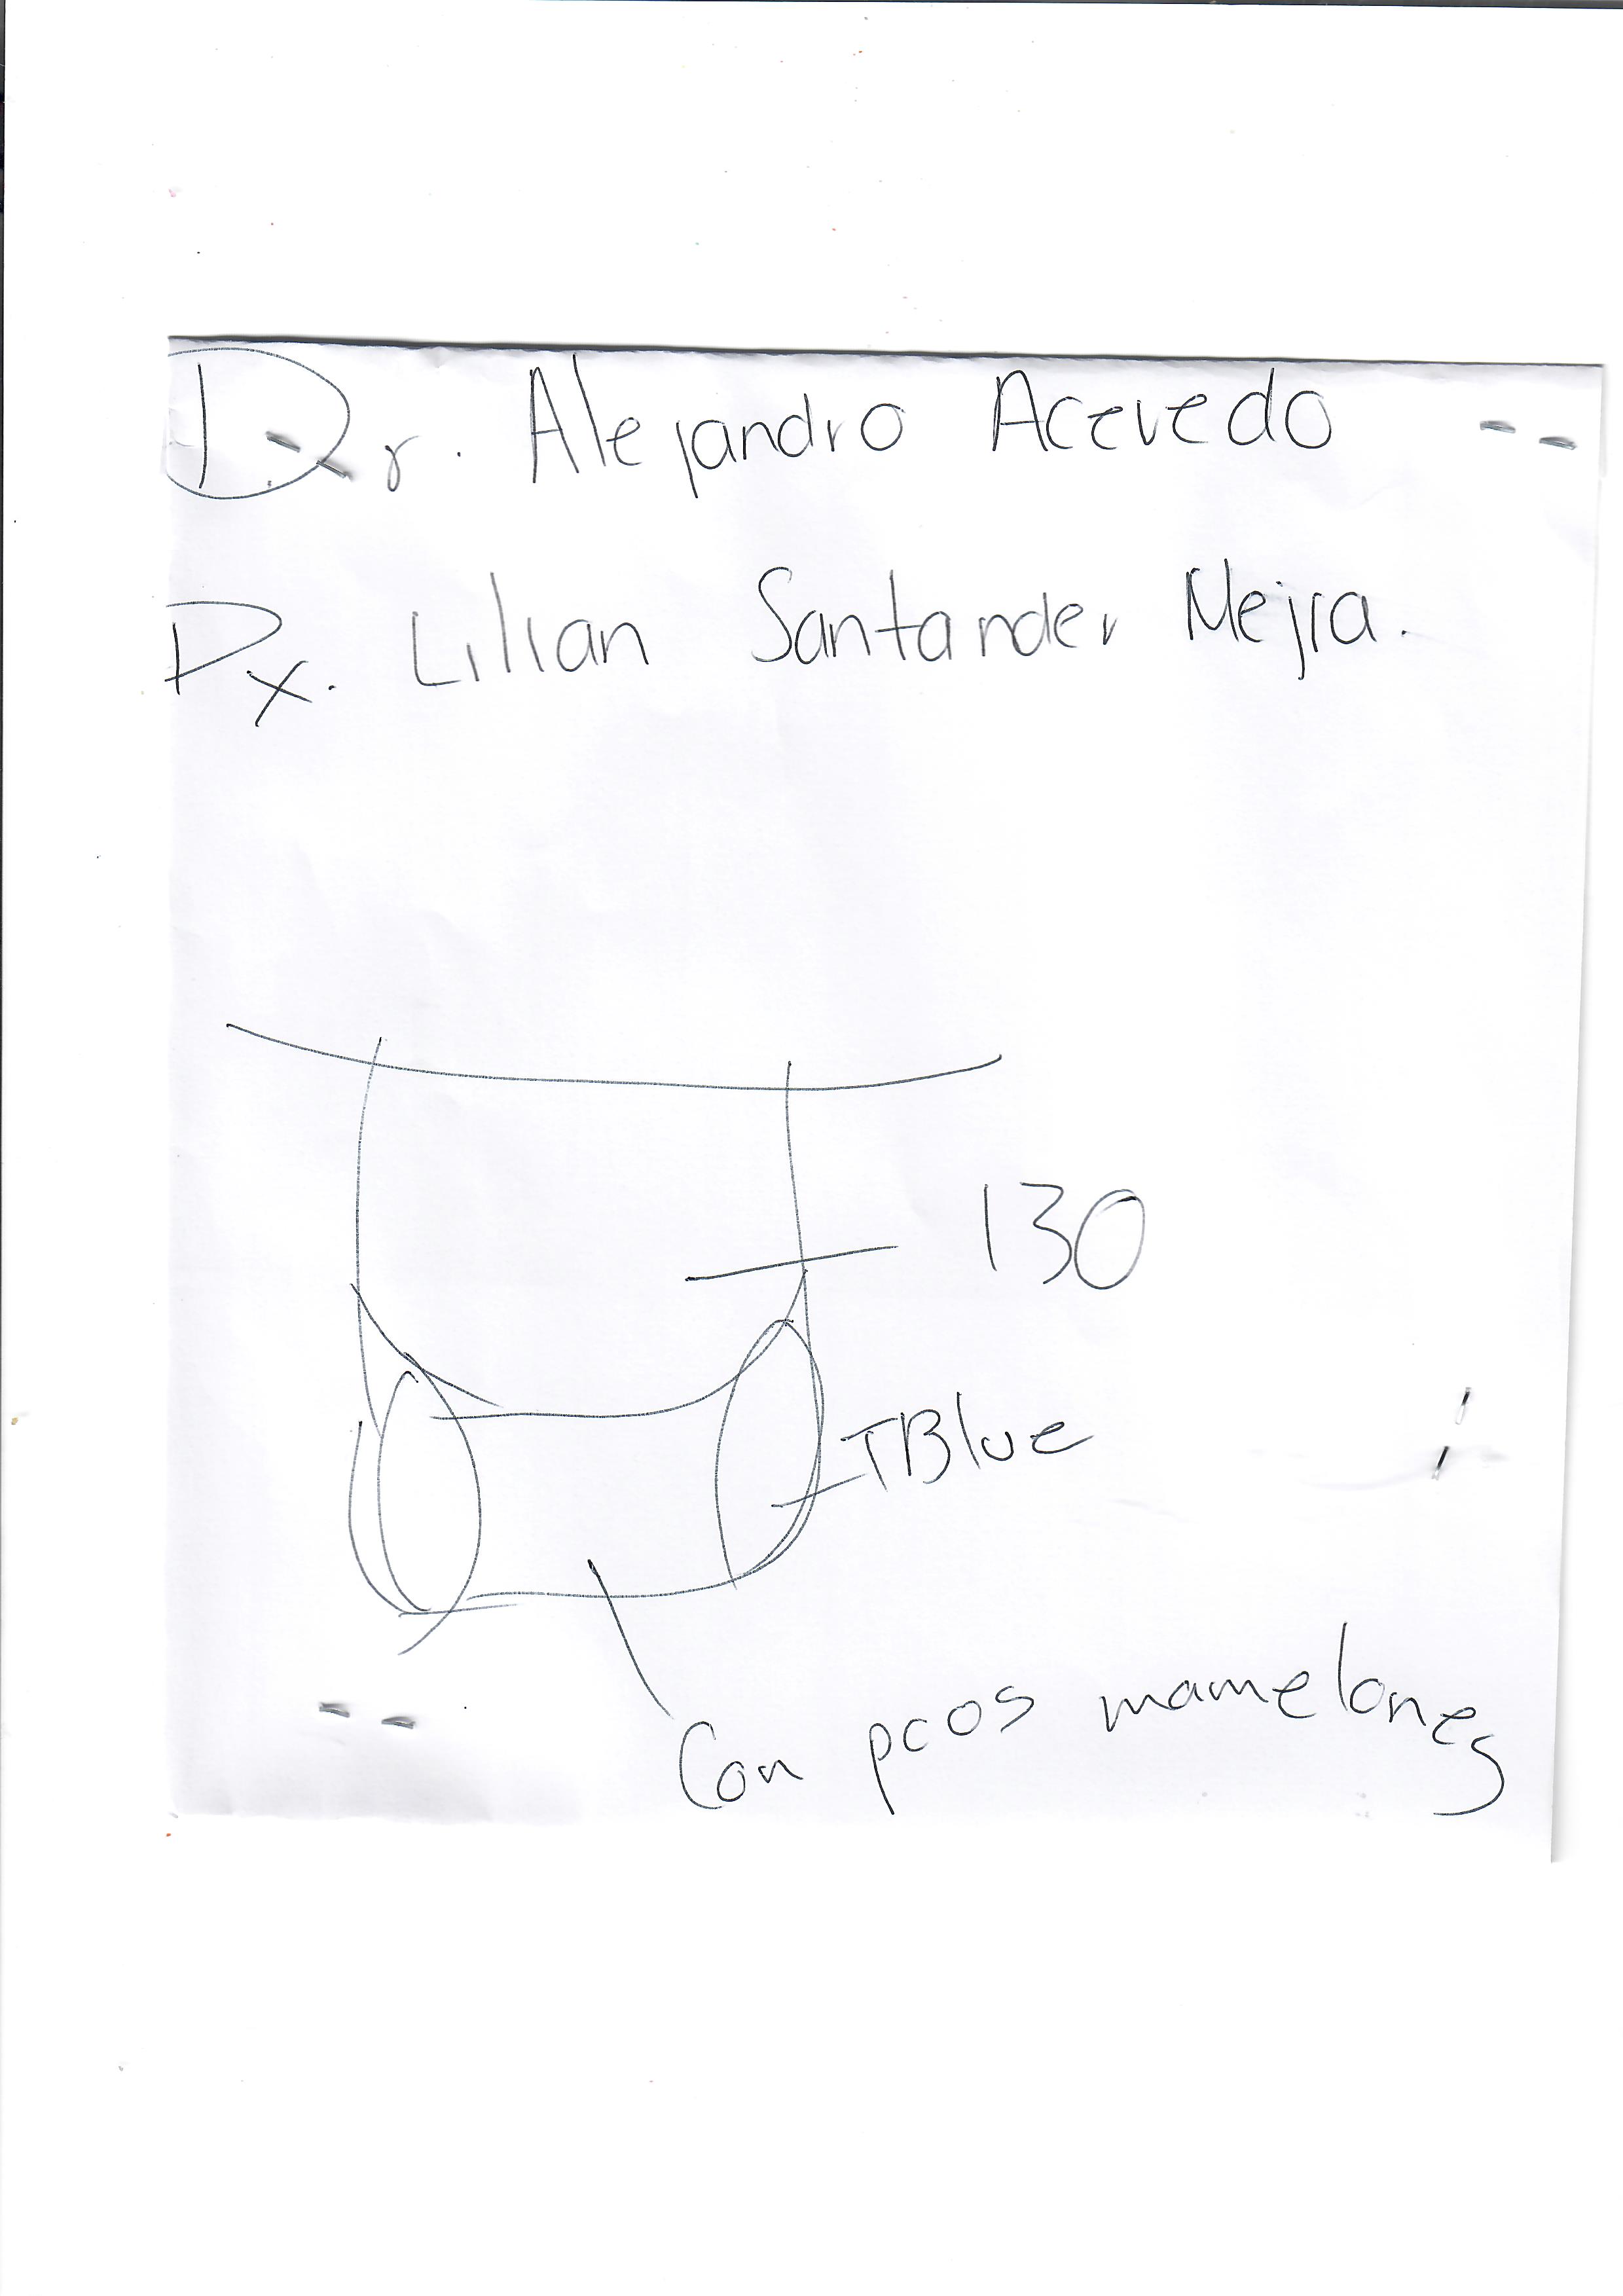 Dr. Alejandro Acevedo
Px. Lilian Santander Mejia.
130
TBlue
Con pcos mamelones